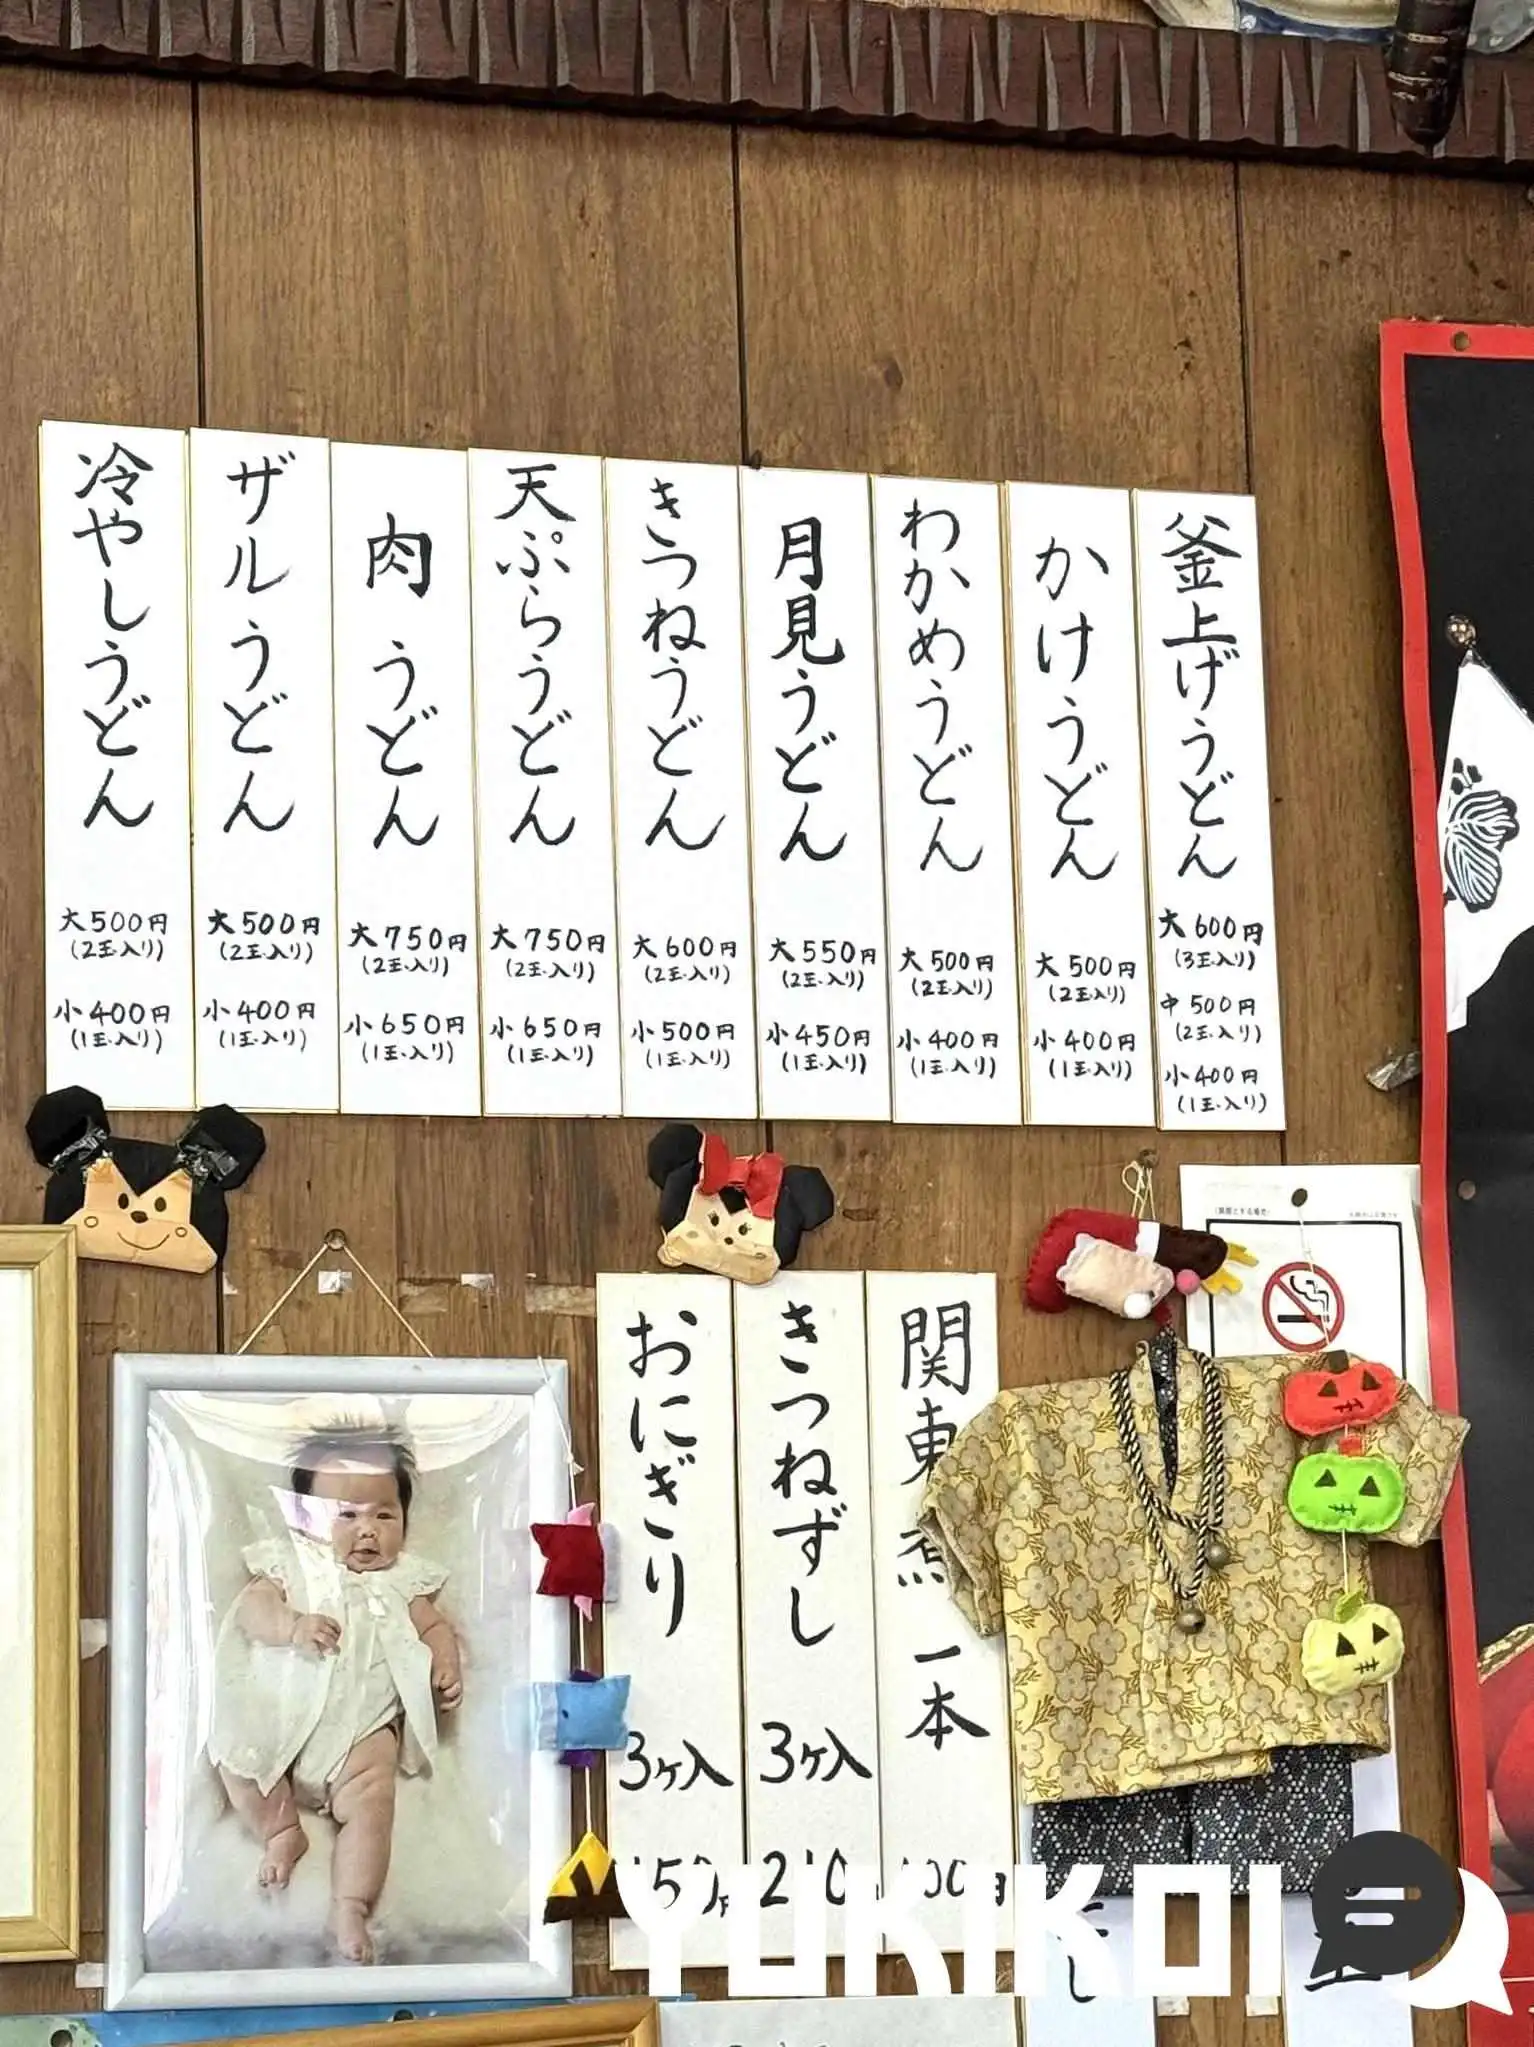 釜上げうどん
大600円
(3玉入り)
中500円
(2玉入り)
小400円
(1玉入り)
かけうどん
大500円
(2玉入り)
小400円
(1玉入り)
わかめうどん
大500円
(2玉入り)
小400円
(1玉入り)
月見うどん
大550円
(2玉入り)
小450円
(1玉入り)
きつねうどん
大600円
(2玉入り)
小500円
(1玉入り)
天ぷらうどん
大750円
(2玉入り)
小650円
(1玉入り)
肉うどん
大750円
(2玉入り)
小650円
(1玉入り)
ザルうどん
大500円
(2玉入り)
小400円
(1玉入り)
冷やしうどん
大500円
(2玉入り)
小400円
(1玉入り)
関東煮 一本
きつねずし 3ヶ入
おにぎり 3ヶ入
YUKIKOI